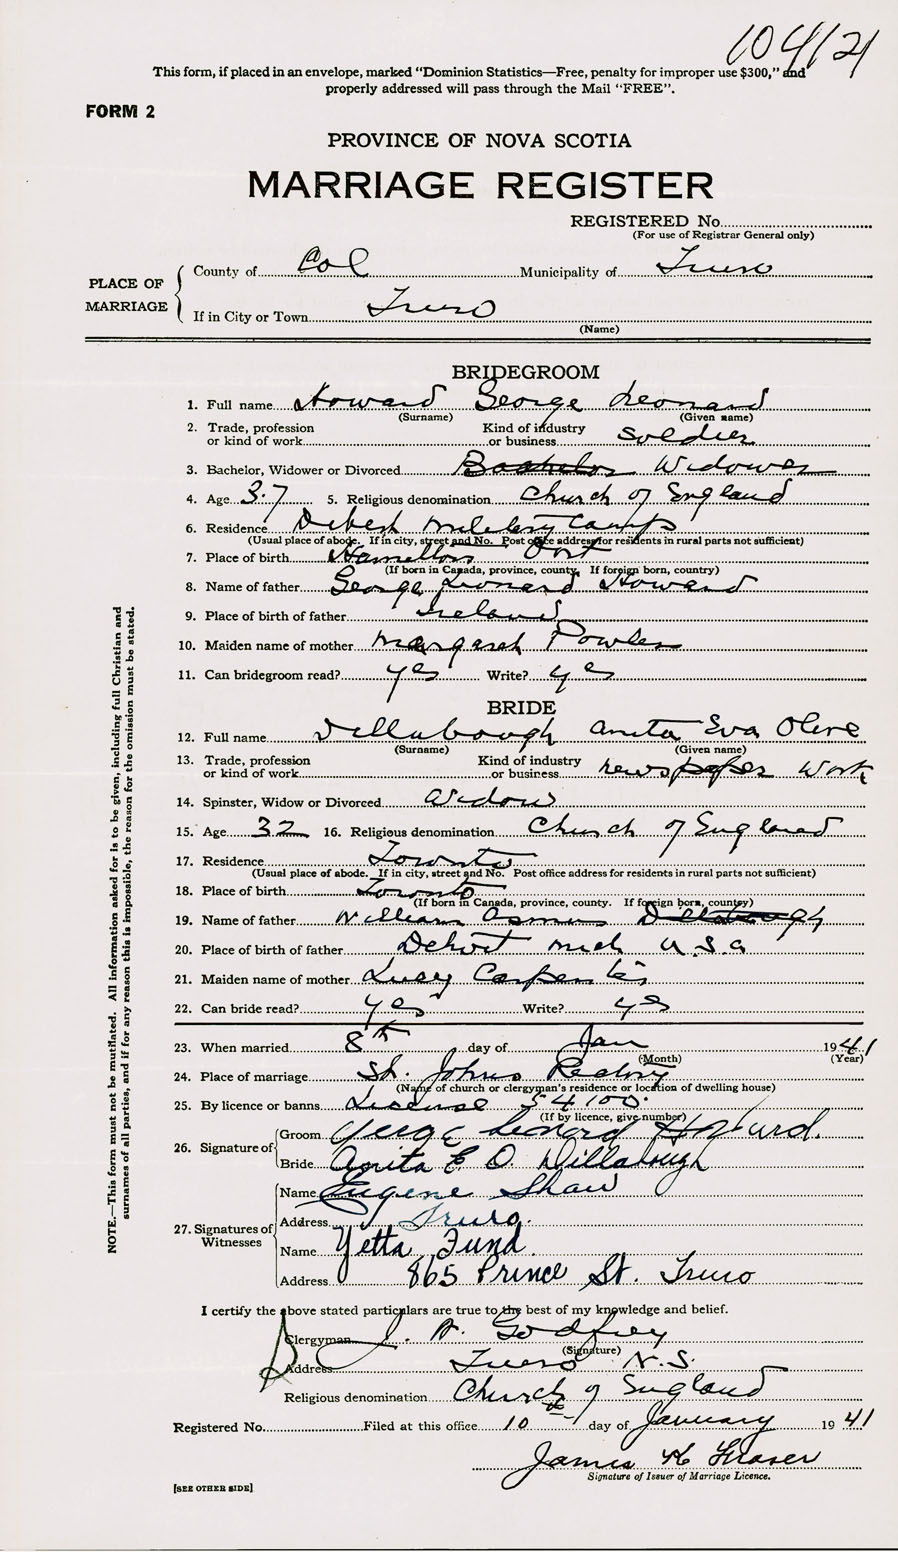 104121
This form, if placed in an envelope, marked "Dominion Statistics—Free, penalty for improper use $300," and
properly addressed will pass through the Mail "FREE".
FORM 2
PROVINCE OF NOVA SCOTIA
MARRIAGE REGISTER
REGISTERED No.
(For use of Registrar General only)
PLACE OF MARRIAGE
County of Col Municipality of Truro
If in City or Town Truro
(Name)
BRIDEGROOM
1. Full name Howard George Leonard
(Surname) (Given name)
2. Trade, profession or kind of work Kind of industry or business soldier
3. Bachelor, Widower or Divorced Bachelor Widower
4. Age 37 5. Religious denomination Church of England
6. Residence Debert Military Camp
(Usual place of abode. If in city, street and No. Post office address for residents in rural parts not sufficient)
7. Place of birth Hamilton Ont
(If born in Canada, province, county. If foreign born, country)
8. Name of father George Leonard Howard
9. Place of birth of father Ireland
10. Maiden name of mother Margaret Fowler
11. Can bridegroom read? yes Write? yes
BRIDE
12. Full name Dillabough Anita Eva Olive
(Surname) (Given name)
13. Trade, profession or kind of work Kind of industry or business newspaper work
14. Spinster, Widow or Divorced Widow
15. Age 32 16. Religious denomination Church of England
17. Residence Toronto
(Usual place of abode. If in city, street and No. Post office address for residents in rural parts not sufficient)
18. Place of birth Toronto
(If born in Canada, province, county. If foreign born, country)
19. Name of father William Dillabough
20. Place of birth of father Detroit Mich U.S.a
21. Maiden name of mother Lucy Carpenter
22. Can bride read? yes Write? yes
23. When married 8th day of Jan 1941
(Month) (Year)
24. Place of marriage St. Johns Rectory
(Name of church or clergyman's residence or location of dwelling house)
25. By licence or banns License 54100
(If by licence, give number)
26. Signature of
Groom George Leonard Howard.
Bride Anita E. O. Dillabough
27. Signatures of Witnesses
Name Eugene Shaw
Address Truro.
Name Yetta Fund
Address 865 Prince St. Truro
I certify the above stated particulars are true to the best of my knowledge and belief.
Clergyman J. W. Godfrey
(Signature)
Address Truro N.S.
Religious denomination Church of England
Registered No. Filed at this office 10th day of January 1941
James K Fraser
Signature of Issuer of Marriage Licence.
[SEE OTHER SIDE]
NOTE.—This form must not be mutilated. All information asked for is to be given, including full Christian and
surnames of all parties, and if for any reason this is impossible, the reason for the omission must be stated.